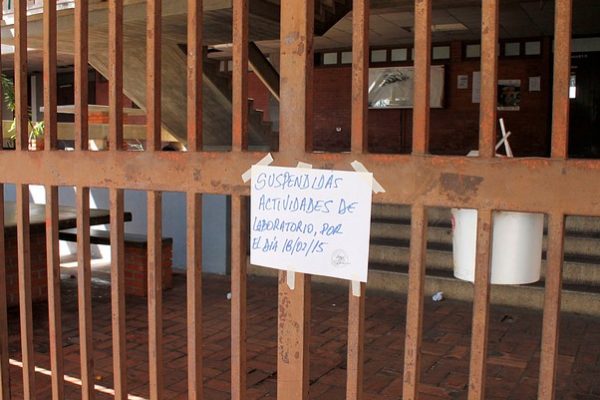 SUSPENDIDAS
ACTIVIDADES DE
LABORATORIO, POR
EL DÍA 18/02/15